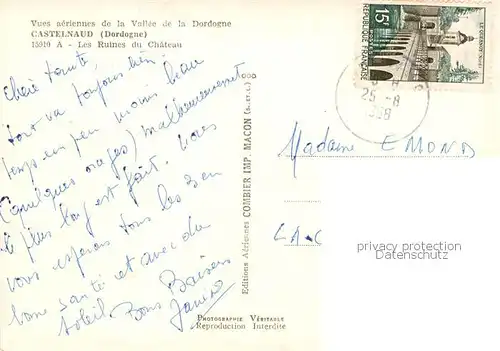 Vues aériennes de la Vallée de la Dordogne
CASTELNAUD (Dordogne)
15910 A - Les Ruines du Château
chère tante,
tout va toujours bien
temps un peu moins beau
(quelques orages) malheureusement
le plus long est fait. nous
vous espérons tous les deux en
bonne santé et avec du
soleil. Bons Baisers
Janine
Editions Aériennes COMBIER IMP. MACON (S.-et-L.)
PHOTOGRAPHIE VÉRITABLE
Reproduction Interdite
15F
REPUBLIQUE FRANÇAISE
POSTES
LE QUESNOY NORD
25 -8
1958
Madame EMOND
LA-C
privacy protection
Datenschutz